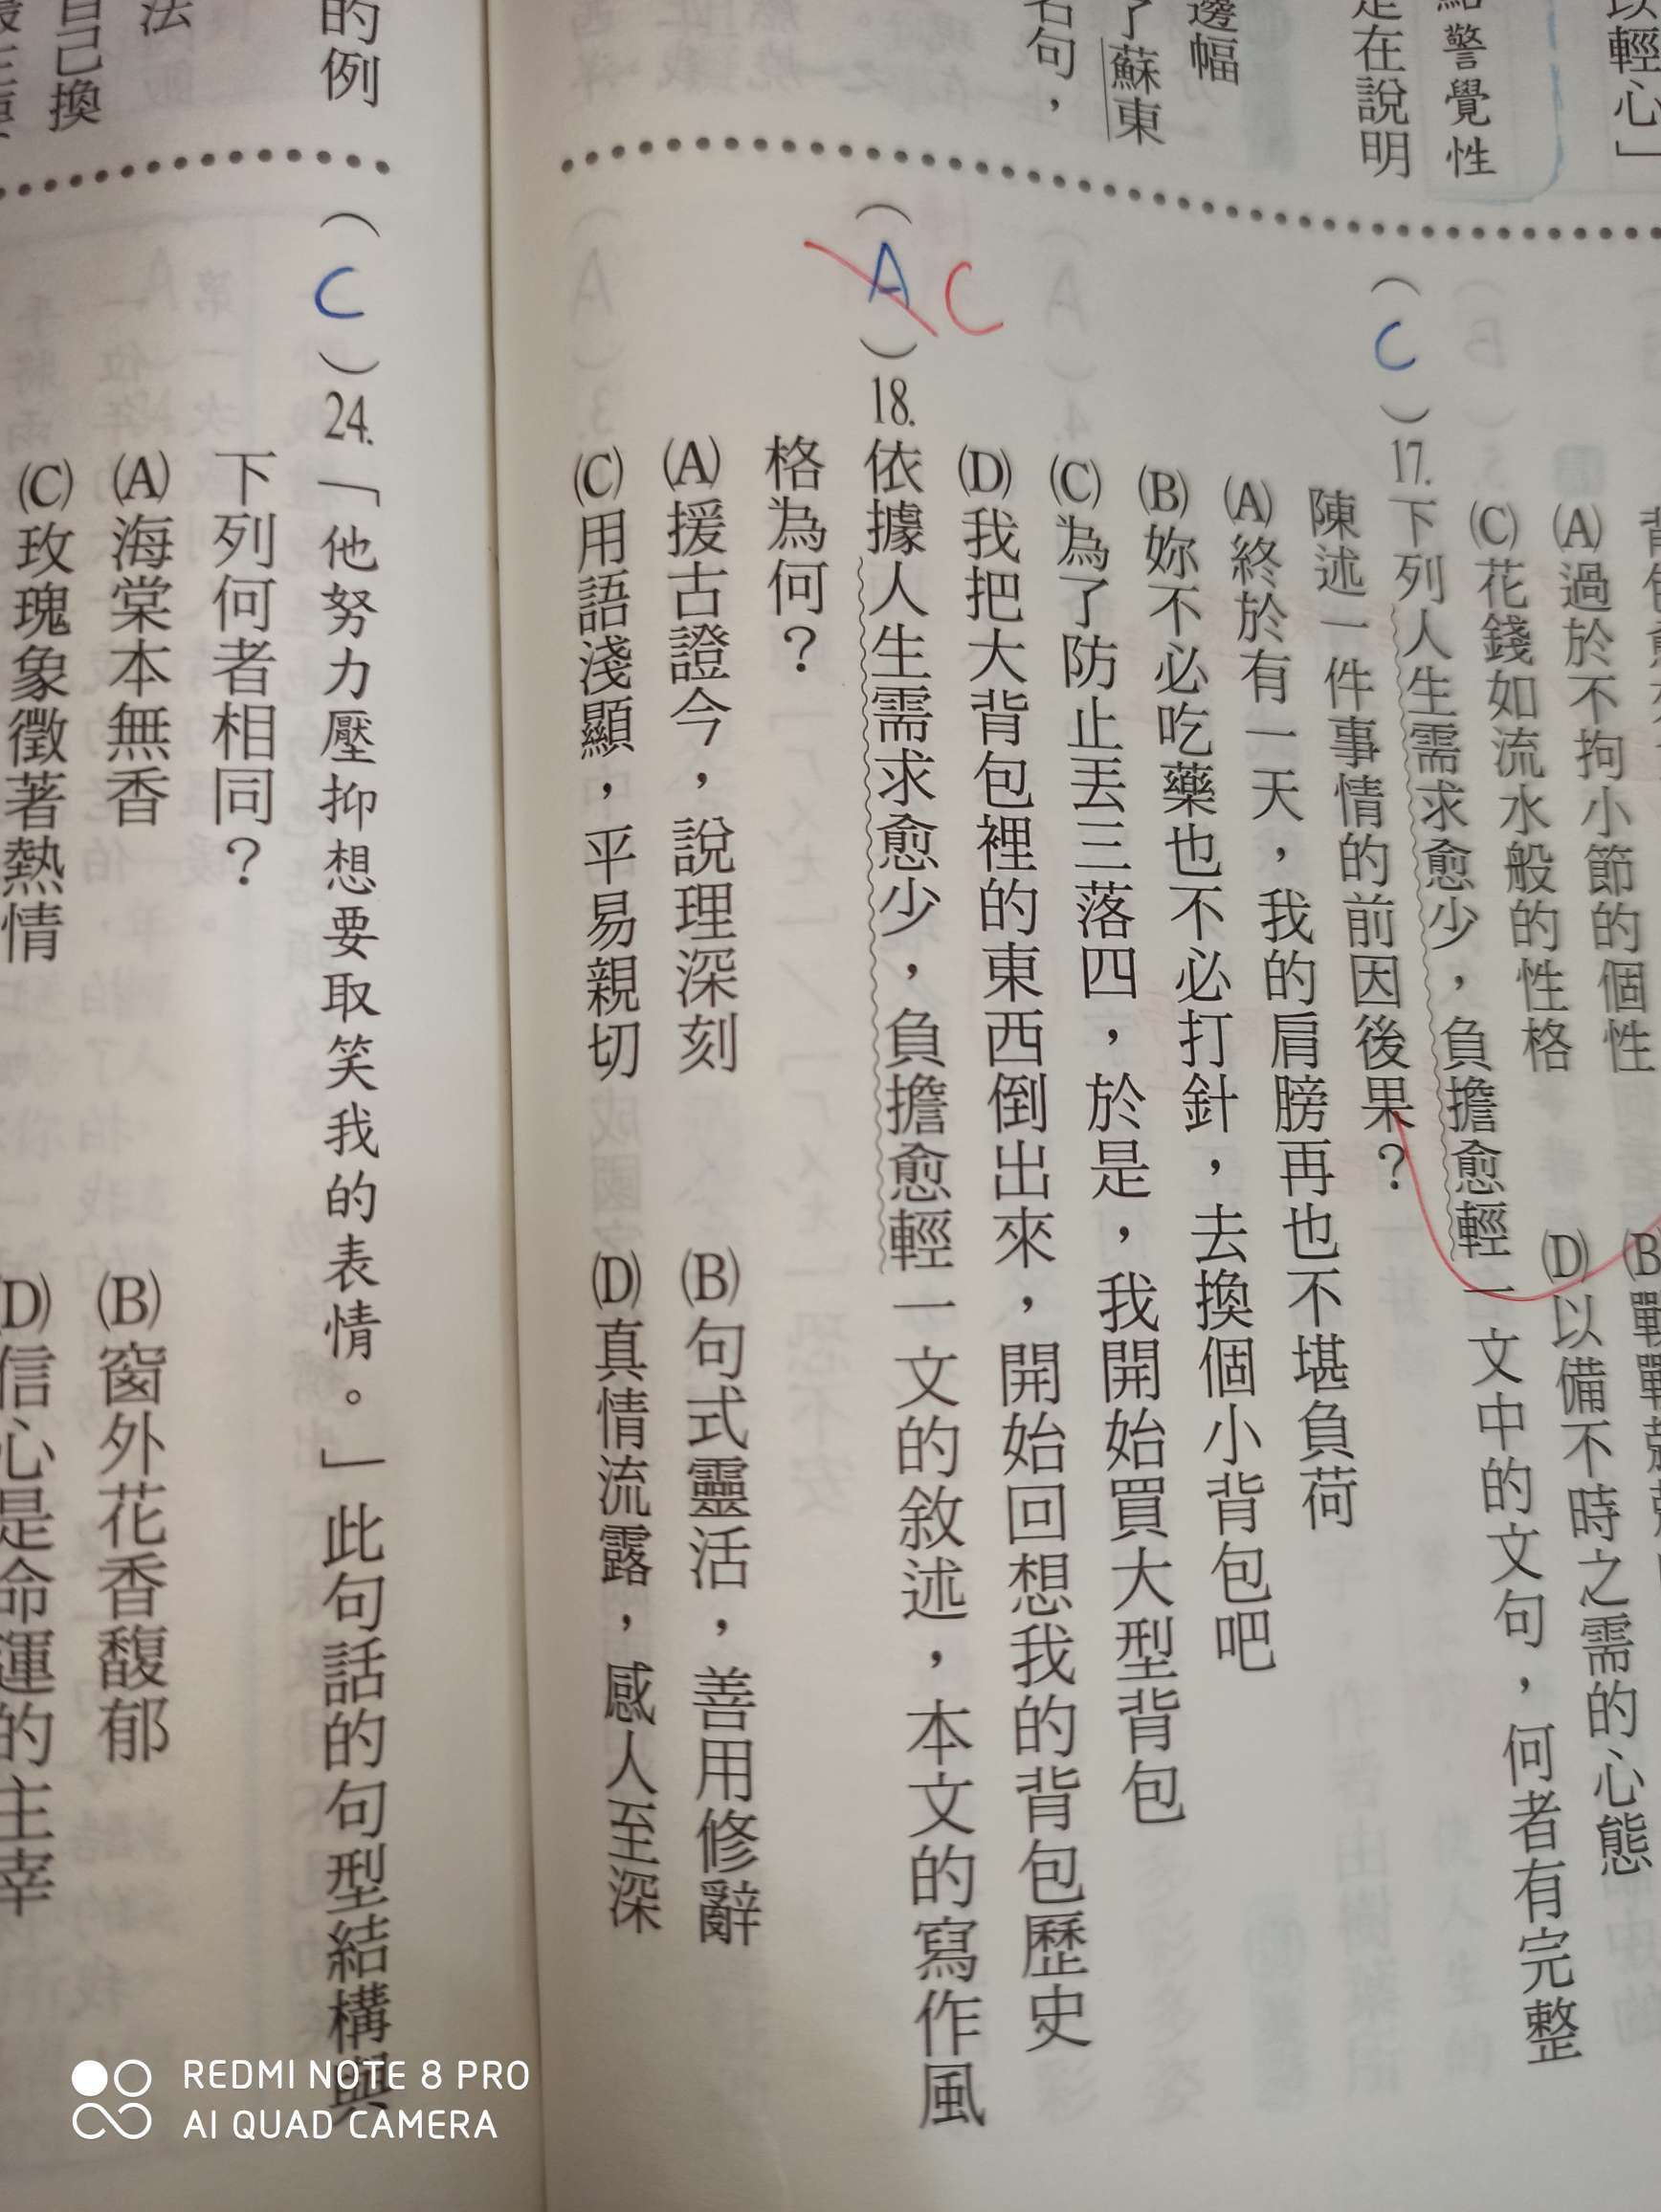 以輕心」
點警覺性
是在說明
邊幅
了蘇東
名句，
(A)過於不拘小節的個性
(C)花錢如流水般的性格
(D)以備不時之需的心態
(C)17.下列人生需求愈少，負擔愈輕一文中的文句，何者有完整
陳述一件事情的前因後果？
(A)終於有一天，我的肩膀再也不堪負荷
(B)妳不必吃藥也不必打針，去換個小背包吧
(C)為了防止丟三落四，於是，我開始買大型背包
(D)我把大背包裡的東西倒出來，開始回想我的背包歷史
(A)C 18.依據人生需求愈少，負擔愈輕一文的敘述，本文的寫作風
格為何？
(A)援古證今，說理深刻 (B)句式靈活，善用修辭
(C)用語淺顯，平易親切 (D)真情流露，感人至深
的例
法
自己換
(C)24.「他努力壓抑想要取笑我的表情。」此句話的句型結構與
下列何者相同？
(A)海棠本無香 (B)窗外花香馥郁
(C)玫瑰象徵著熱情 (D)信心是命運的主宰
REDMI NOTE 8 PRO
AI QUAD CAMERA